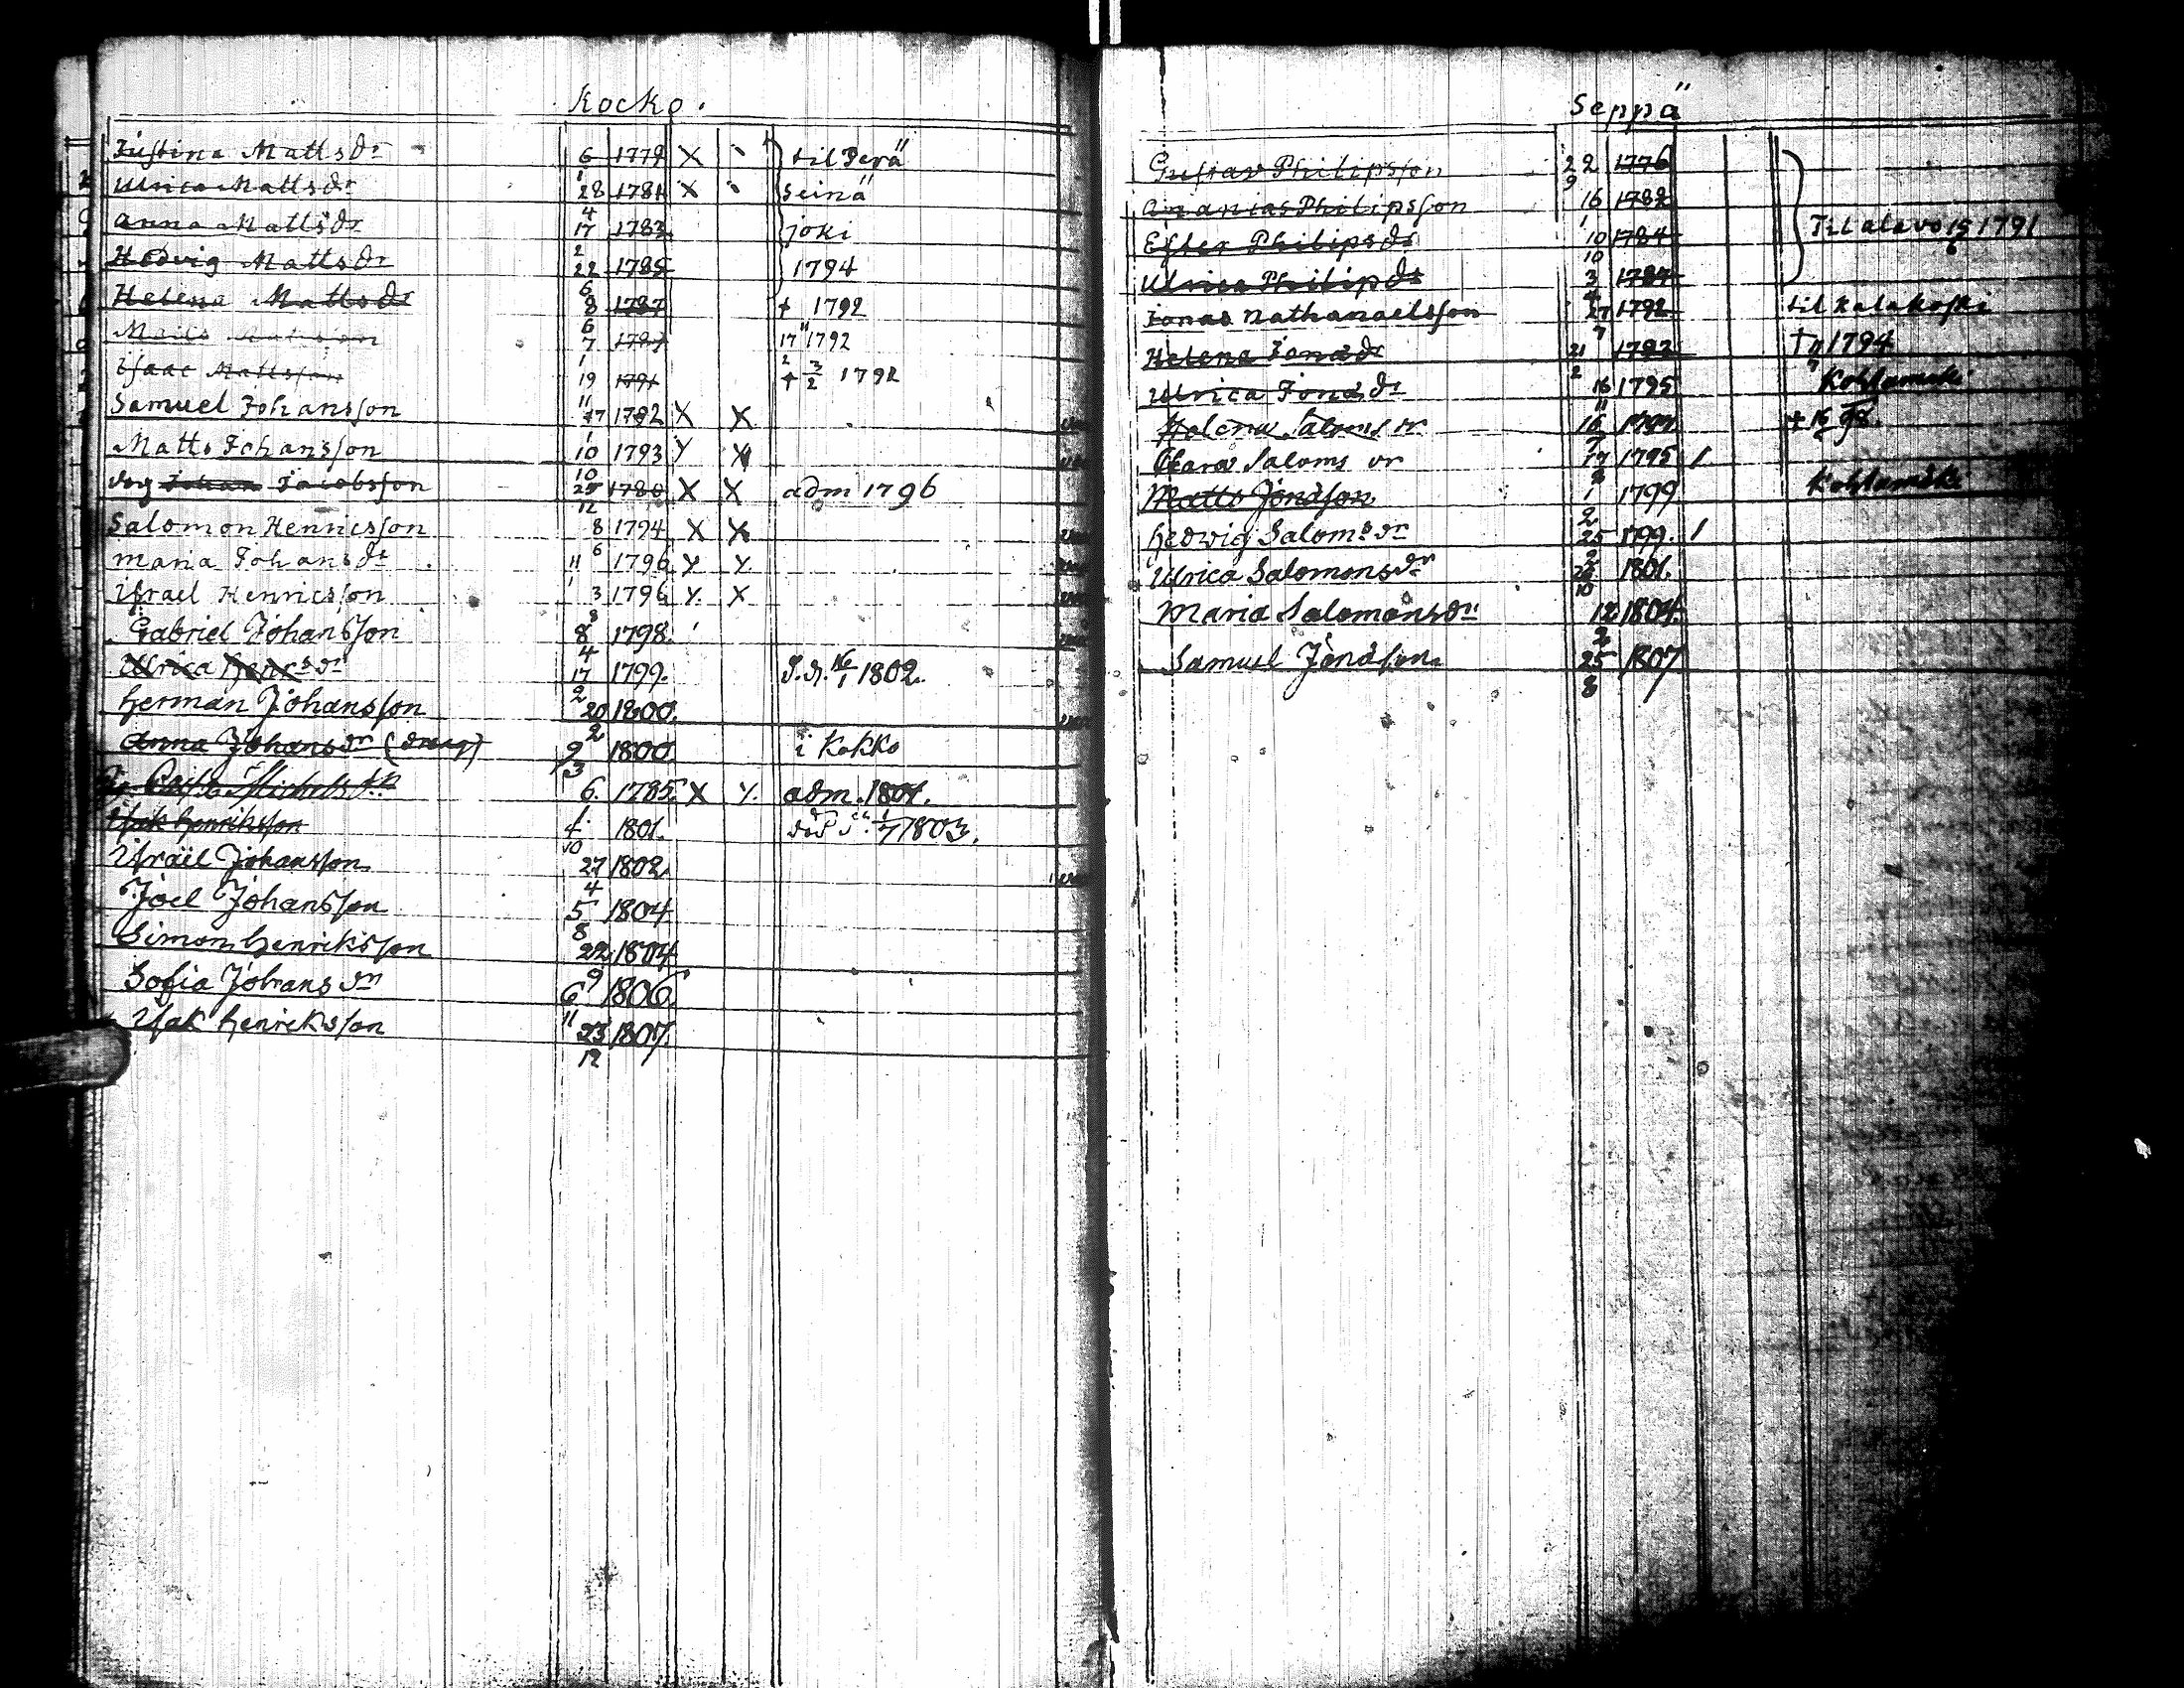 Kocko.
Justina Mattsdr 6/1 1779 X til Perä
Ulrica Mattsdr 28/4 1781 X seinä
Anna Mattsdr 17/2 1783 joki
Hedvig Mattsdr 22/6 1785 1794
Helena Mattsdr 8/6 1787 † 1792
Mattsson 7/1 1789 17/2 1792
Isaac Mattsson 19/11 1791 † 3/2 1792
Samuel Johansson 17/1 1782 X X
Matts Johansson 10/10 1793 Y X
drg Johan Jacobsson 25/12 1780 X X adm 1796
Salomon Henricsson 8/6 1794 X X
Maria Johansdr 11/1 1796 Y Y
Israel Henricsson 3/8 1796 Y X
Gabriel Johansson 8/4 1798
Ulrica Henrsdr 17/2 1799. 16/1 1802.
Herman Johansson 20/2 1800.
Anna Johansdr 9/3 1800 i Kokko
Caisa Michelsdr 6. 1785. X Y. adm. 1801.
Isak Henriksson 4/10 1801. 1/7 1803.
Israël Johansson 27/4 1802
Joel Johansson 5/8 1804
Simon Henriksson 22/9 1804
Sofia Johansdr 6/11 1806.
Isak Henriksson 23/12 1807.
Seppä
Gustav Philipsson 22/9 1776
Ananias Philipsson 16/1 1782
Ester Philipsdr 10/10 1784 Til alavo 19/6 1791
Ulrica Philipdr 3/4 1787
Jonas Nathanaelsson 27/7 1792 til Kalakoski
Helena Jonædr 21/2 1793 † 11/7 1794
Ulrica Jonædr 16/11 1795 Kohlamäki
Helena Salomsdr 16/7 1797 † 98.
Clara Saloms dr 17/8 1795 1
Matts Jonæson 1/2 1799 Kohlamäki
Hedwig Salomsdr 25/2 1799. 1
Ulrica Salomonsdr 10 1801.
Maria Salomonsdr 12/2 1804.
Samuel Jonæson 25/8 1807